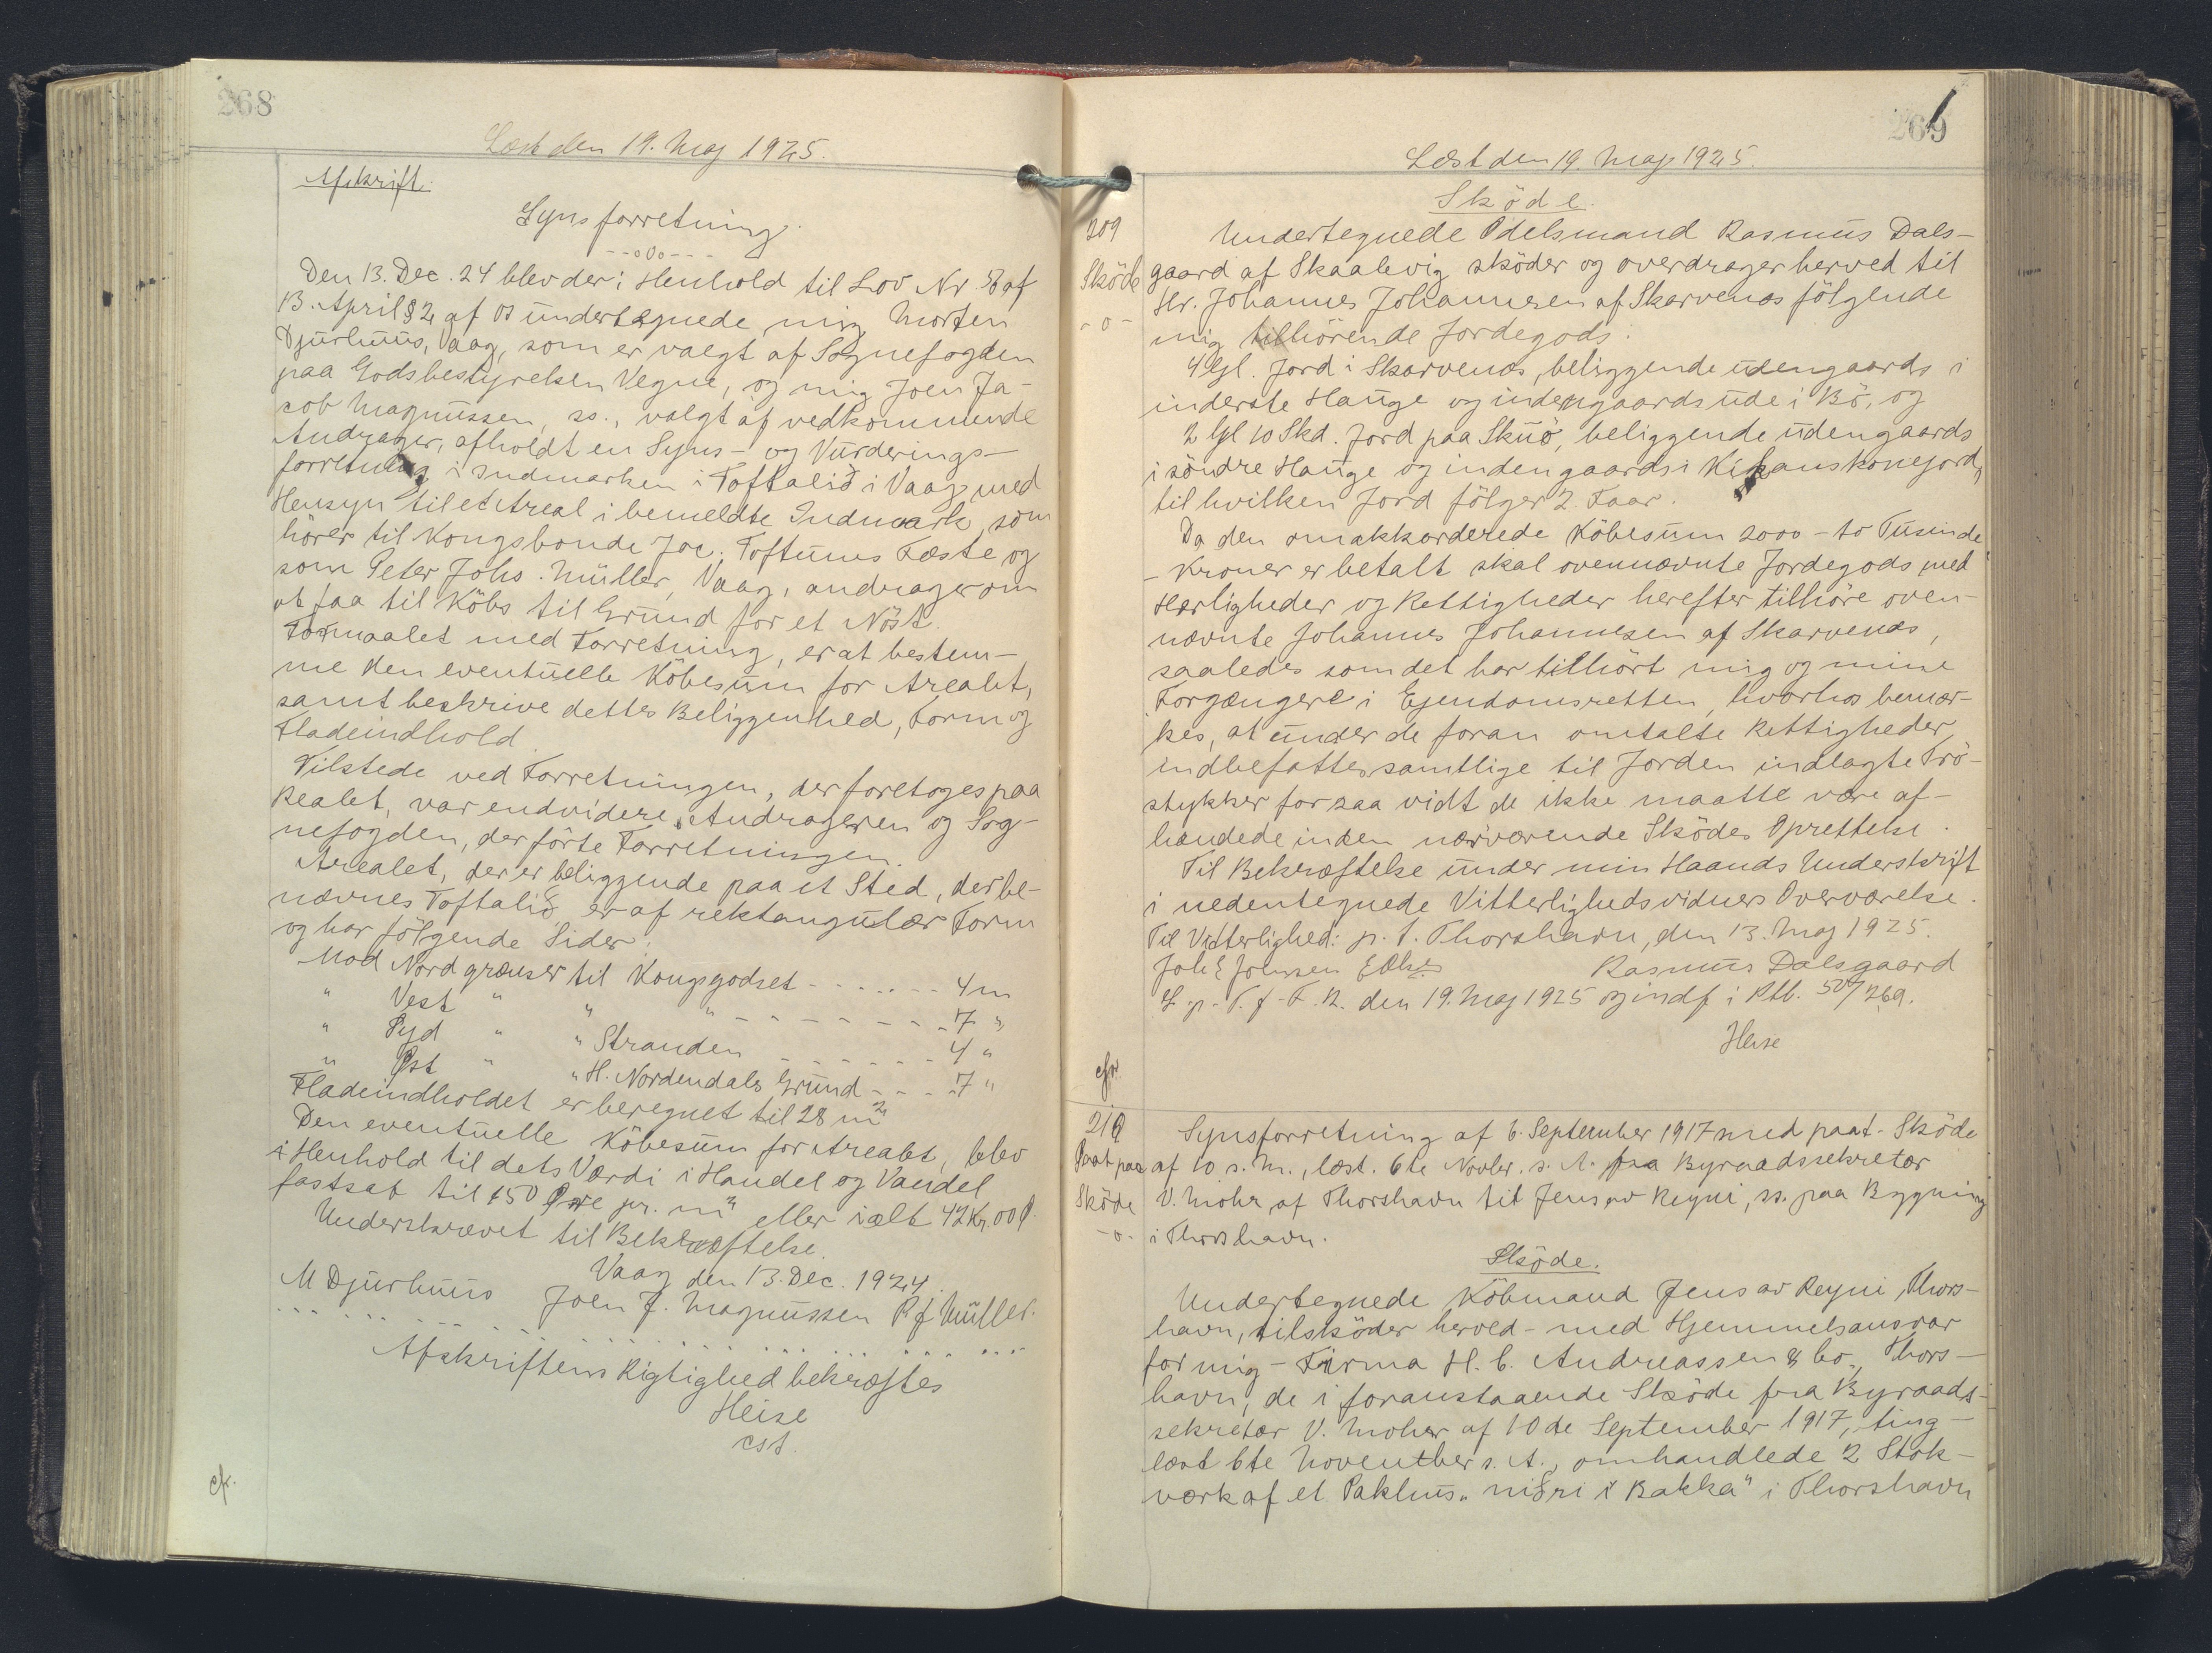 268
Læst den 19. Maj 1925.
Afskrift.
Synsforretning.
--oOo---
Den 13. Dec. 24 blev der i Henhold til Lov Nr. af
13. April § 2 af os undertegnede, mig Morten
Djurhuus, Vaag, som er valgt af Sognefogden
paa Godsbestyrelsen Vegne, og mig Joen Ja-
cob Magnussen, ss., valgt af vedkommende
Andrager, afholdt en Syns- og Vurderings-
forretning i Indmarken i Toftalið i Vaag med
Hensyn til et Areal i bemeldte Indmark, som
hører til Kongsbonde Joc. Toftunes Fæste og
som Peter Johs. Müller, Vaag, andrager om
at faa til Købs til Grund for et Nöst.
Formaalet med Forretning, er at bestem-
me den eventuelle Köbesum for Arealet,
samt beskrive dettes Beliggenhed, Form og
Fladeindhold.
Tilstede ved Forretningen, der foretoges paa
Realet, var endvidere Andrageren og Sog-
nefogden, der förte Forretningen.
Arealet, der er beliggende paa et Sted, der be-
nævnes Toftalið er af rektangulær Form
og har fölgende Sider:
Mod Nord grænser til Kongsgodset - - - - - - 4 m
" Vest " " " - - - - - - - 7 "
" Syd " " Stranden - - - - - - 4 "
" Øst " " H. Nordendals Grund - - - 7 "
Fladeindholdet er beregnet til 28 m²
Den eventuelle Köbesum for Arealet, blev
i Henhold til dets Værdi i Handel og Vandel
fastsat til 150 Øre pr. m² eller ialt 42 Kr. 00 Ø.
Underskrevet til Bekræftelse.
Vaag den 13. Dec. 1924.
M Djurhuus Joen J. Magnussen P J Müller.
Afskriftens Rigtighed bekræftes
Heise
cst.
cfr.
269
Læst den 19. Maj 1925.
Sköde.
209
Undertegnede Odelsmand Rasmus Dals-
Sköde
gaard af Skaalevig sköder og overdrager herved til
Hr. Johannes Johannesen af Skarvenæs fölgende
- o -
mig tilhörende Jordegods:
4 Gl. Jord i Skarvenæs, beliggende udengaards i
inderste Hauge og indengaards ude i Bö, og
2 Gl 10 Skd. Jord paa Skuö, beliggende udengaards
i söndre Hauge og indengaards i
til hvilken Jord fölger 2 Faar.
Da den omakkorderede Köbesum 2000 - to Tusinde
- Kroner er betalt skal ovennævnte Jordegods med
Herligheder og Rettigheder herefter tilhöre oven-
nævnte Johannes Johannesen af Skarvenæs,
saaledes som det har tilhört mig og mine
Forgængere i Ejendomsretten, hvorhos bemær-
kes, at under de foran omtalte Rettigheder
indbefattes samtlige til Jorden indlagte Trö-
stykker for saa vidt de ikke maatte være af-
hændede inden nærværende Sködes Oprettelse.
Til Bekræftelse under min Haands Underskrift
i nedentegnede Vitterlighedsvidners Overværelse.
Til Vitterlighed: p. t. Thorshavn, den 13. Maj 1925.
Joh E Johnsen Rasmus Dalsgaard
L. p. T. f. F. R. den 19. Maj 1925 og indf i Ptb. 50/269.
Heise
cfr.
210
Synsforretning af 6. September 1917 med paat. Sköde
Paat paa
af 10 s. M., læst. 6te Novbr. s. A. fra Byraadssekretær
Sköde
V. Mohr af Thorshavn til Jens av Reyni, ss. paa Bygning
- o -
i Thorshavn.
Sköde.
Undertegnede Köbmand Jens av Reyni, Thors-
havn, tilsköder herved - med Hjemmelsansvar
for mig - Firma H. C. Andreassen & Co., Thors-
havn, de i foranstaaende Sköde fra Byraads-
sekretær V. Moher af 10 de September 1917, ting-
læst 6te November s. A., omhandlede 2 Stok-
værk af et Pakhus "niðri i Bakka" i Thorshavn